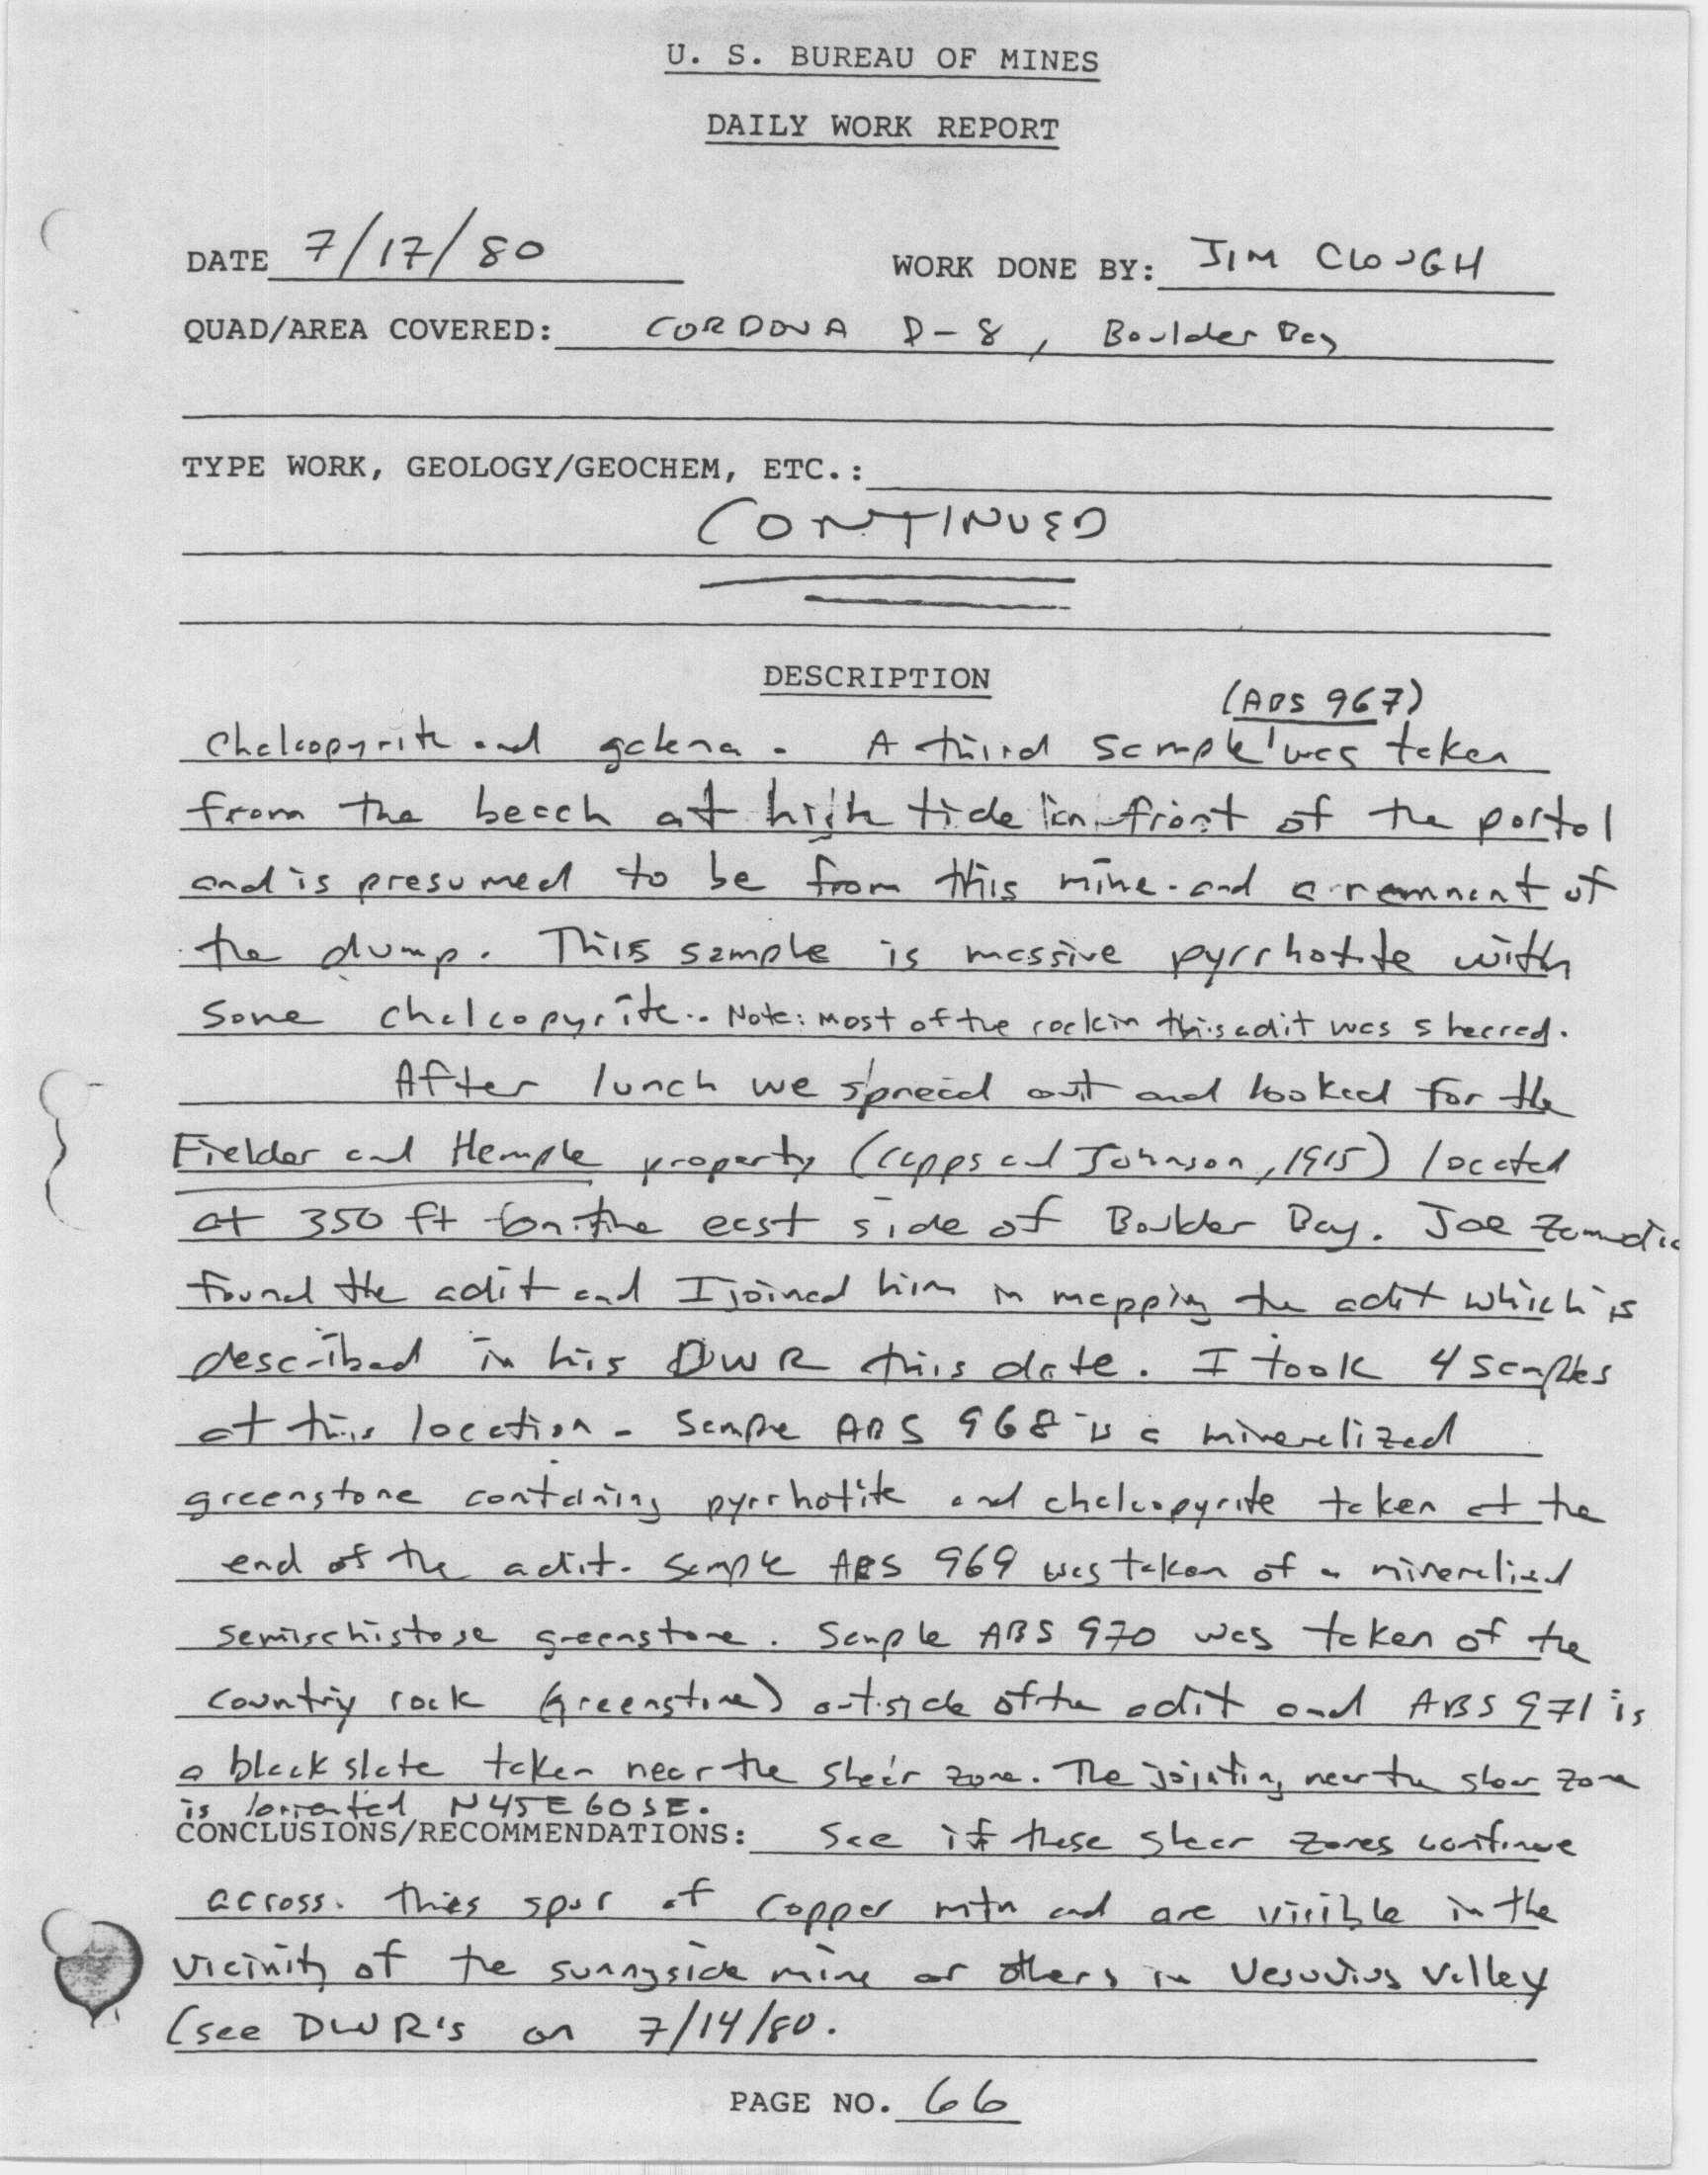 U. S. BUREAU OF MINES
DAILY WORK REPORT
DATE 7/17/80 WORK DONE BY: JIM CLOUGH
QUAD/AREA COVERED: CORDOVA D-8, Boulder Bay
TYPE WORK, GEOLOGY/GEOCHEM, ETC.:
CONTINUED
DESCRIPTION
(ABS 967)
Chalcopyrite and galena. A third sample was taken
from the beach at high tide in front of the portal
and is presumed to be from this mine and a remnant of
the dump. This sample is massive pyrrhotite with
some chalcopyrite. Note: most of the rock in this adit was sheared.
After lunch we spread out and looked for the
Fielder and Hemple property (Capps and Johnson, 1915) located
at 350 ft on the east side of Boulder Bay. Joe
found the adit and I joined him in mapping the adit which is
described in his DWR this date. I took 4 samples
at this location. Sample ABS 968 is a mineralized
greenstone containing pyrrhotite and chalcopyrite taken at the
end of the adit. Sample ABS 969 was taken of a mineralized
semischistose greenstone. Sample ABS 970 was taken of the
country rock (greenstone) outside of the adit and ABS 971 is
a black slate taken near the shear zone. The jointing near the shear zone
is oriented N45E 60SE.
CONCLUSIONS/RECOMMENDATIONS: See if these shear zones continue
across this spur of Copper mtn and are visible in the
vicinity of the sunnyside mine or others in Vesuvius Valley
(see DWR's on 7/14/80.
PAGE NO. 66